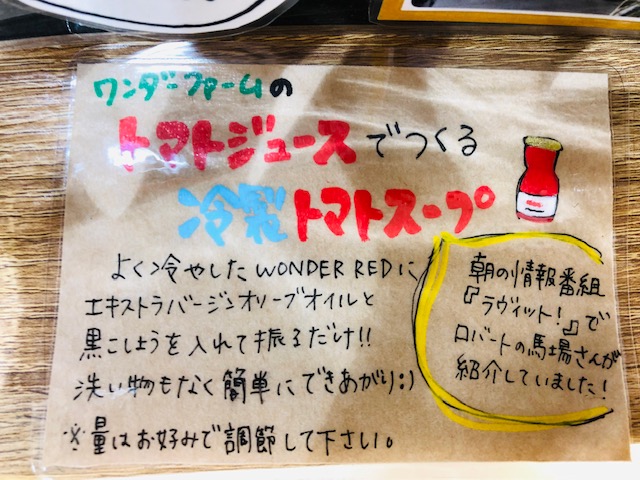 ワンダーファームの
トマトジュースでつくる
冷製トマトスープ
よく冷やしたWONDER REDに
エキストラバージンオリーブオイルと
黒こしょうを入れて振るだけ!!
洗い物もなく簡単にできあがり:)
※量はお好みで調節して下さい。
朝の情報番組
『ラヴィット!』で
ロバートの馬場さんが
紹介していました!